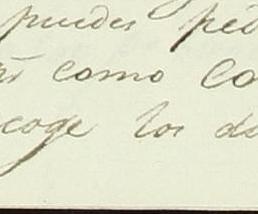 puedes ped
como co
coge los do